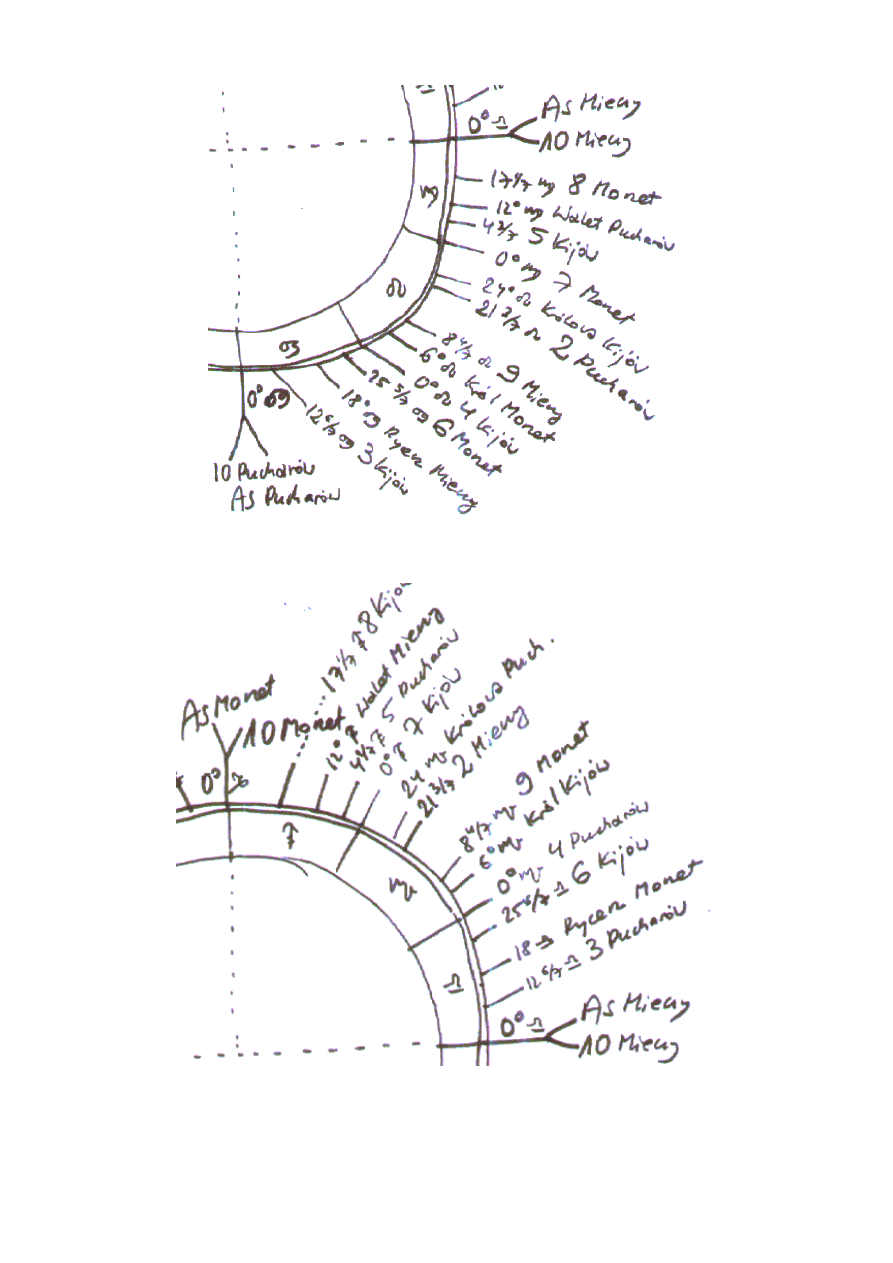 ♎
As Mieczy
0° ♎
10 Mieczy
17 1/7 ♍ 8 Monet
♍
12° ♍ Walet Pucharów
4 2/7 5 Kijów
0° ♍ 7 Monet
♌
24° ♌ Królowa Kijów
21 3/7 ♌ 2 Pucharów
8 4/7 ♌ 9 Mieczy
6° ♌ Król Monet
0° ♌ 4 Kijów
♋
25 5/7 ♋ 6 Monet
18° ♋ Rycerz Mieczy
12 6/7 ♋ 3 Kijów
0° ♋
10 Pucharów
As Pucharów
17 1/7 ♐ 8 Kijów
12° ♐ Walet Mieczy
4 2/7 ♐ 5 Pucharów
0° ♐ 7 Kijów
As Monet
10 Monet
0° ♑
24 ♏ Królowa Puch.
21 3/7 2 Mieczy
8 4/7 ♏ 9 Monet
♐
6° ♏ Król Kijów
♏
0° ♏ 4 Pucharów
25 6/7 ♎ 6 Kijów
18 ♎ Rycerz Monet
12 6/7 ♎ 3 Pucharów
♎
As Mieczy
0° ♎
10 Mieczy